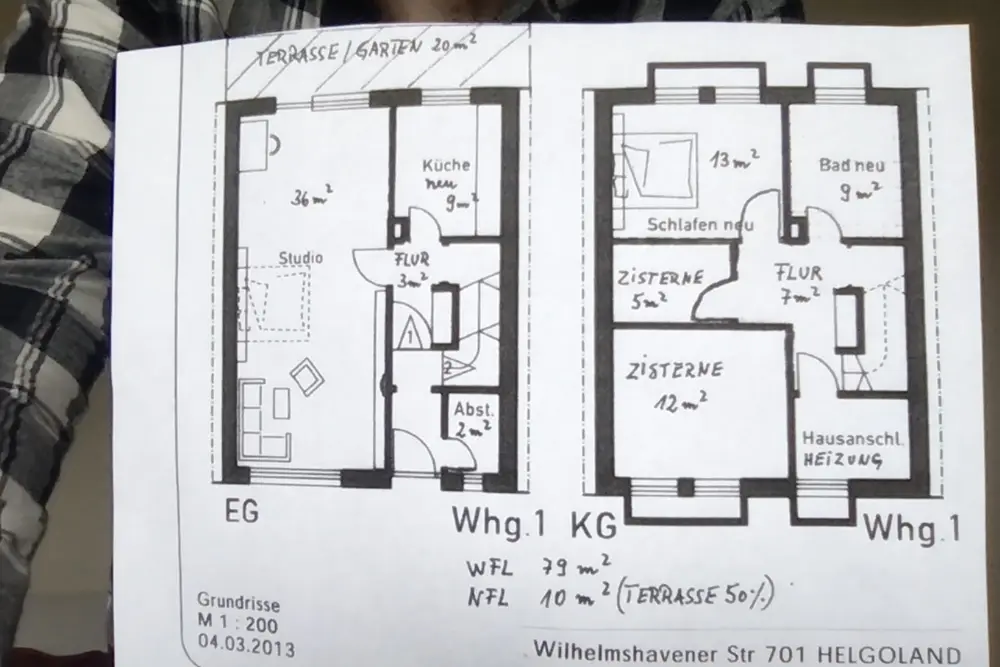 TERRASSE / GARTEN 20m²
36m²
Studio
Küche
neu
9m²
FLUR
3m²
1
2
Abst.
2m²
EG
Whg.1
13m²
Schlafen neu
Bad neu
9m²
ZISTERNE
5m²
FLUR
7m²
ZISTERNE
12m²
Hausanschl.
HEIZUNG
KG
Whg.1
WFL 79 m²
NFL 10 m² (TERRASSE 50%)
Grundrisse
M 1 : 200
04.03.2013
Wilhelmshavener Str 701 HELGOLAND